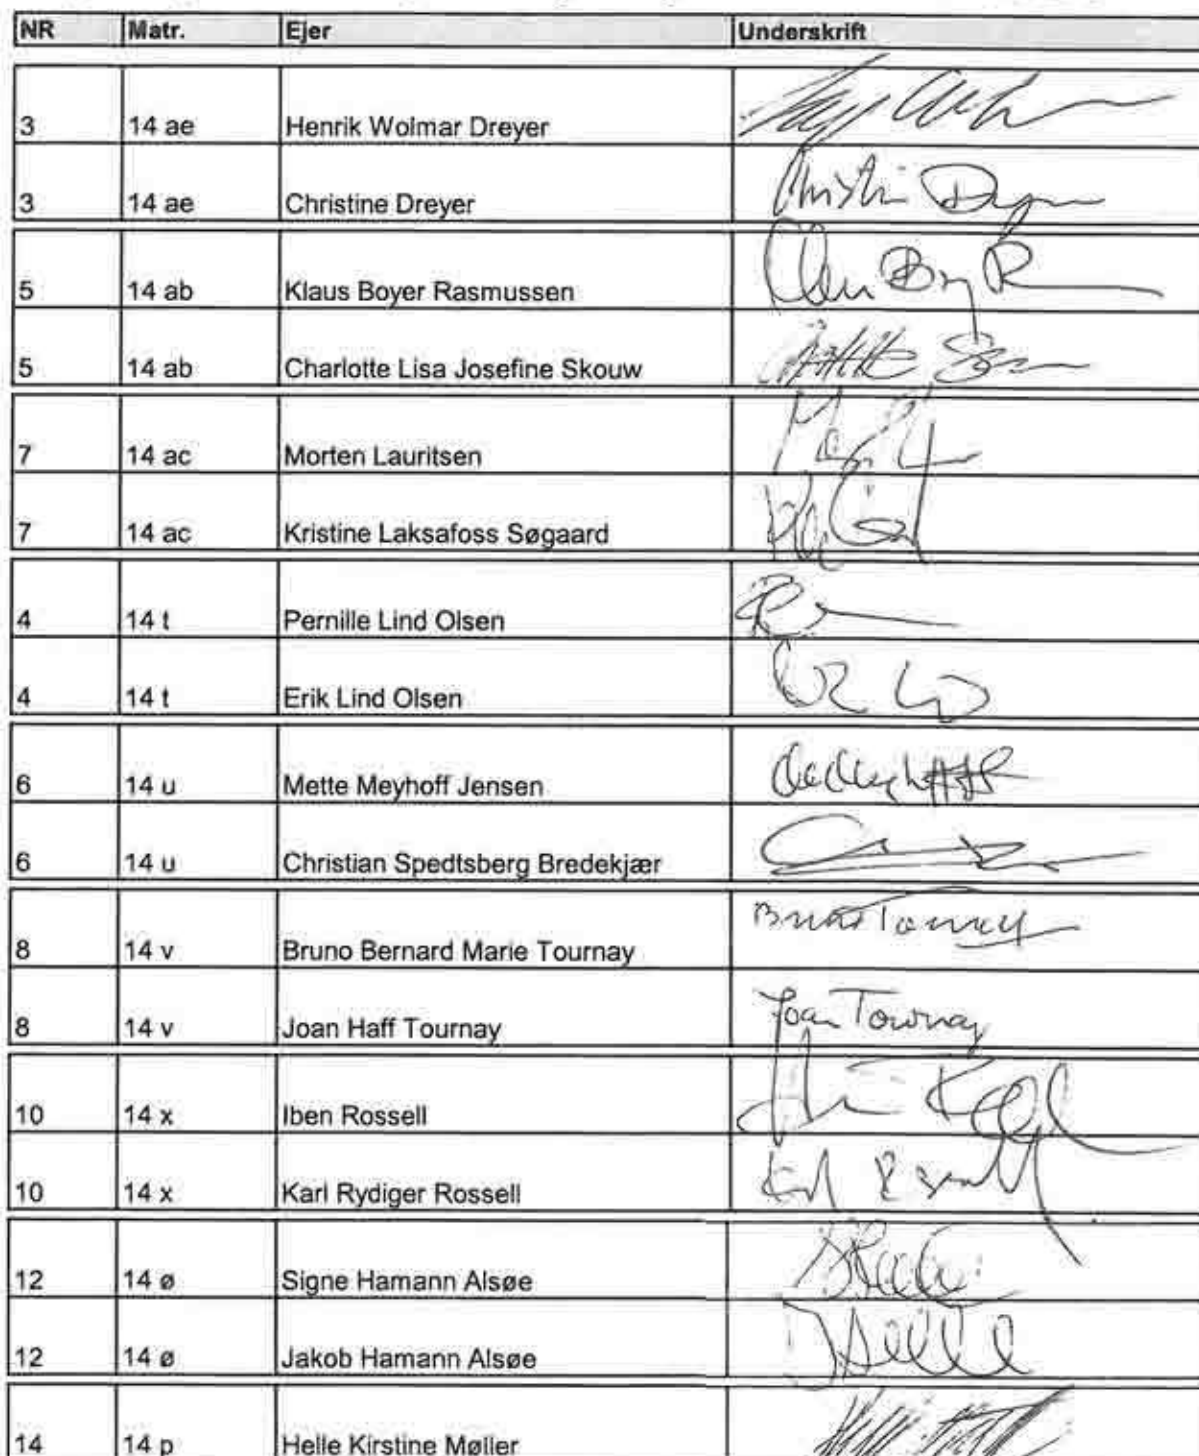 NR Matr. Ejer Underskrift
3 14 ae Henrik Wolmar Dreyer
3 14 ae Christine Dreyer
5 14 ab Klaus Boyer Rasmussen
5 14 ab Charlotte Lisa Josefine Skouw
7 14 ac Morten Lauritsen
7 14 ac Kristine Laksafoss Søgaard
4 14 t Pernille Lind Olsen
4 14 t Erik Lind Olsen
6 14 u Mette Meyhoff Jensen
6 14 u Christian Spedtsberg Bredekjær
8 14 v Bruno Bernard Marie Tournay Bruno Tournay
8 14 v Joan Haff Tournay Joan Tournay
10 14 x Iben Rossell
10 14 x Karl Rydiger Rossell
12 14 ø Signe Hamann Alsøe
12 14 ø Jakob Hamann Alsøe
14 14 p Helle Kirstine Møller